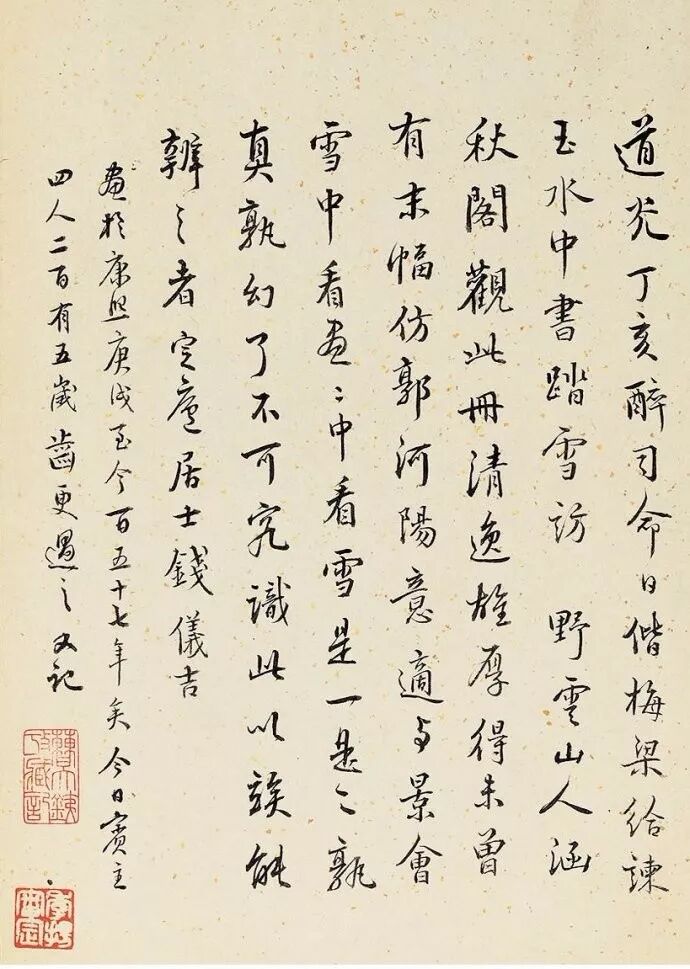 道光丁亥醉司命日偕梅梁給諫
玉水中書踏雪訪 野雲山人涵
秋閣觀此冊清逸雄厚得未曾
有末幅仿郭河陽意適与景會
雪中看畫〻中看雪是一是二孰
真孰幻了不可究識此以竢能
辨之者定廬居士錢儀吉
畫於康熙庚戌至今百五十七年矣今日賓主
四人二百有五歲齒更過之又記